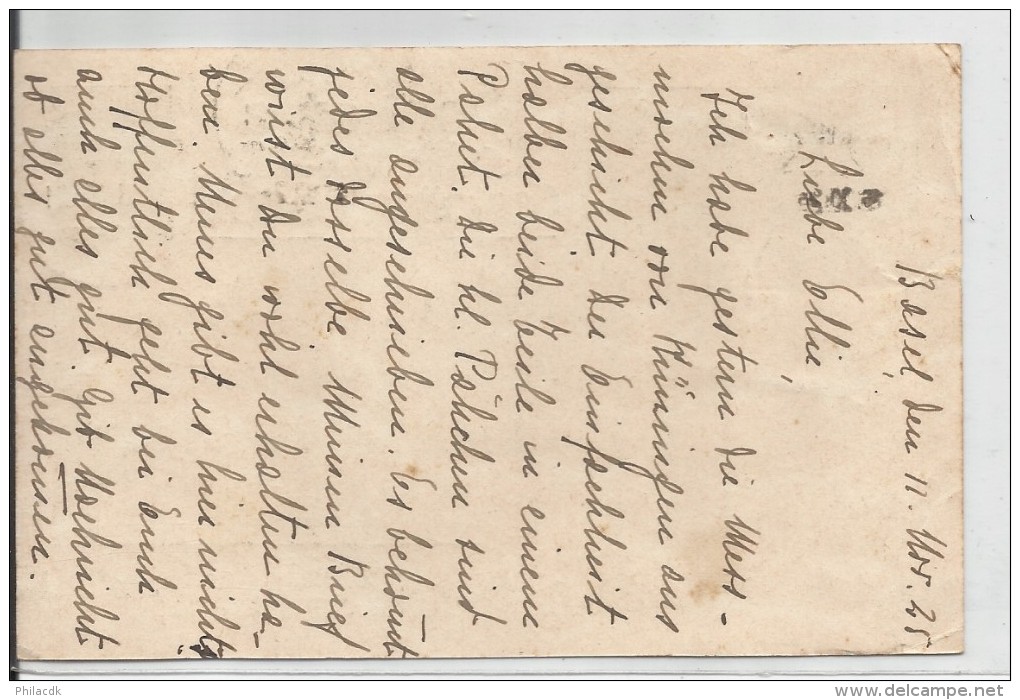 Basel, den 11. Nov. 25
Liebe Ellie,
Ich habe gestern die Mess-
maschine von Hüningen aus
geschickt der Einfachheit
halber beide Teile in einem
Paket. Die hl. Päckchen sind
alle angeschrieben. Es bekommt
jedes dasselbe. Meinen Brief
wirst Du wohl erhalten ha-
ben. Neues gibt es hier nichts.
Hoffentlich geht bei Euch
auch alles gut. Gib Nachricht
ob alles gut angekommen.
Philacdk
www.delcampe.net